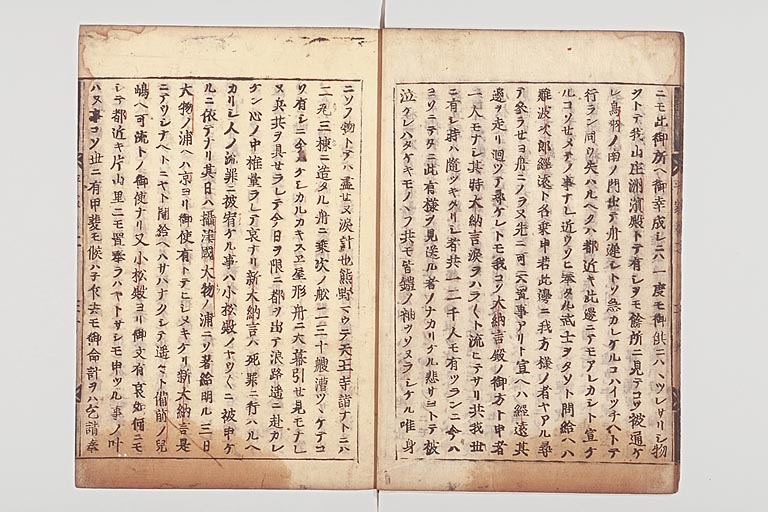 ニモ此御所ヘ御幸成シニハ一度モ御供ニハハツレサリシ物
ヲトテ我山庄洲濱殿トテ有シヲモ餘所ニ見テコソ被通ケ
レ鳥羽ノ南ノ門出テ舟遅シトソ急カレケルコハイツチヘトテ
行ラン同ウ失ハルヘクハ都近キ此邊ニテモアレカシト宣ケ
ルコソセメテノ事ナレ近ウソヒ奉タル武士ヲタソト問給ヘハ
難波次郎經遠ト名乗申若此邊ニ我方様ノ者ヤアル尋
テ參ラセヨ舟ニノラヌ先ニ可云置事アリト宣ヘハ經遠其
邊ヲ走リ廻ツテ尋ケレトモ我コソ大納言殿ノ御方ト申者
一人モナシ其時大納言涙ヲハラ〱ト流ヒテサリ共我世
ニ有シ時ハ隨ツキタリシ者共一二千人モ有ツランニ今ハ
ヨソニテタニ此有様ヲ見送ル者ノナカリケル悲サヨトテ被
泣ケレハタケキモノヽフ共モ皆鎧ノ袖ヲソヌラシケル唯身
ニソフ物トテハ盡セヌ涙計也熊野マウテ天王寺詣ナトニハ
二瓦三棟ニ造タル舟ニ乗次ノ舩二三十艘漕ツヽケテコ
ソ有シニ今ハケシカルカキスヱ屋形舟ニ大幕引セ見モナレ
ヌ兵共ヲ具セラレテ今日ヲ限ニ都ヲ出テ浪路遥ニ赴カレ
ケン心ノ中推量ラレテ哀ナリ新大納言ハ死罪ニ行ハルヘ
カリシ人ノ流罪ニ被宥ケル事ハ小松殿ノヤウ〱ニ被申ケ
ルニ依テナリ其日ハ攝津國大物ノ浦ニソ著給明ル三日
大物ノ浦ヘハ京ヨリ御使有トテヒシメキケリ新大納言是
ニテウシナヘトニヤト問給ヘハサハナクシテ遥々ト備前ノ兒
嶋ヘ可流トノ御使ナリ又小松殿ヨリ御文有哀如何ニモ
シテ都近キ片山里ニモ置奉ラハヤトサシモ申ツル事ノ叶
ハヌ事コソ世ニ有甲斐モ候ハネ乍去モ御命計ヲハ乞請奉